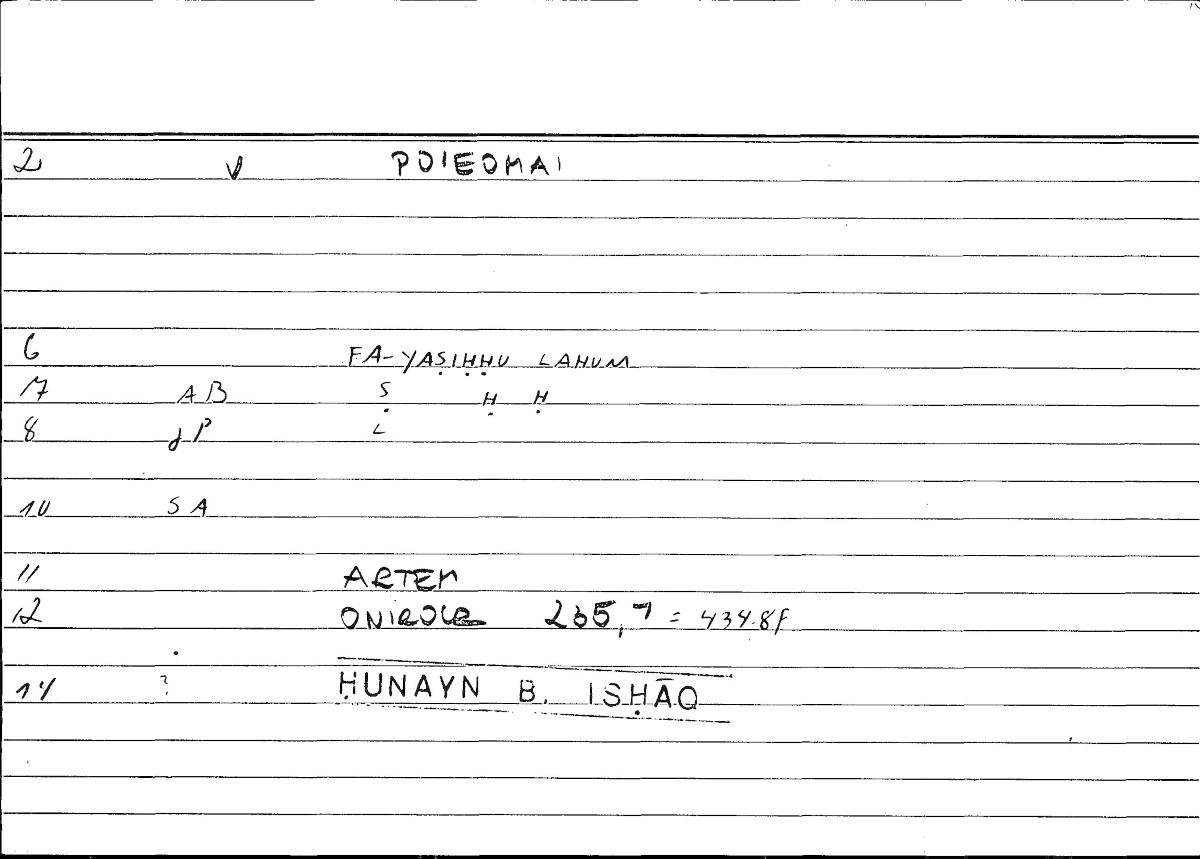 2 V POIEOMAI
6 FA-YAṢIḤḤU LAHUM
7 AB Ṣ Ḥ Ḥ
8 JP L
10 SA
11 ARTEM
12 ONIROCR 265,7 = 434.8f
14 ? ḤUNAYN B. ISḤĀQ